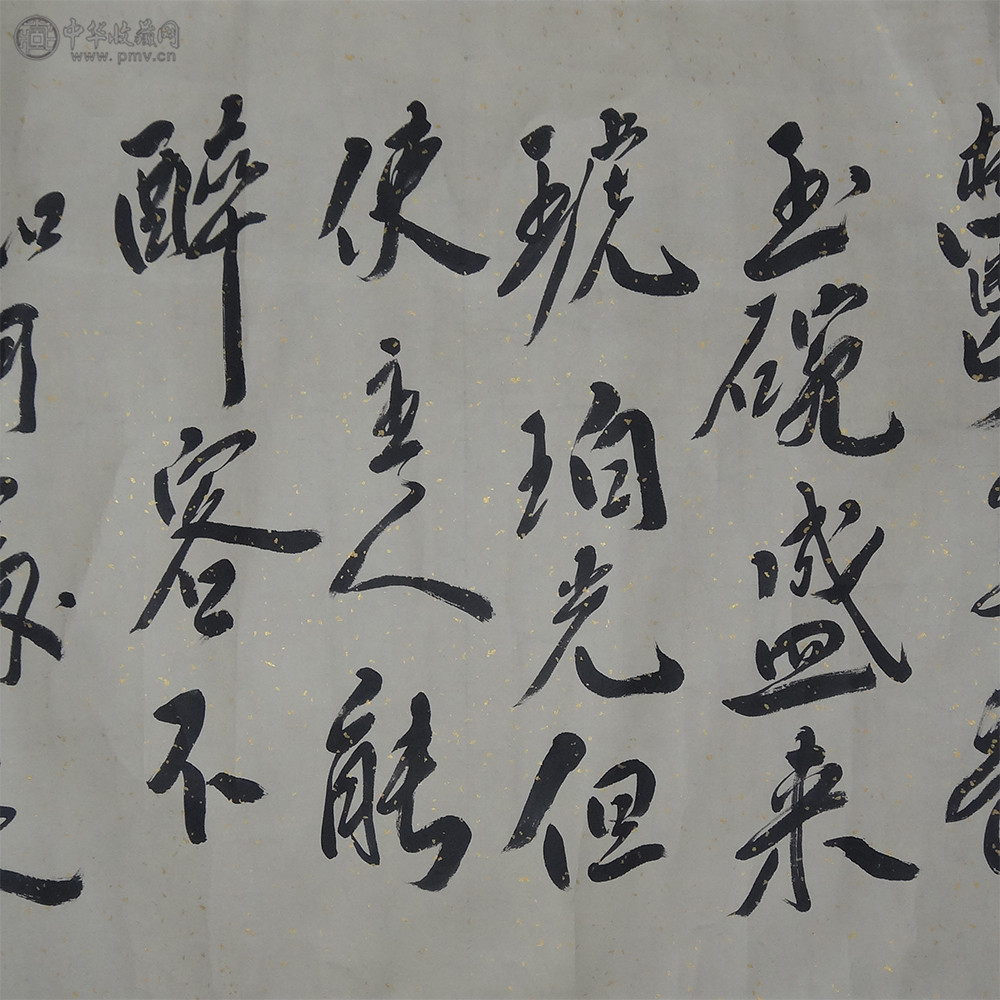 玉碗盛来
琥珀光但
使主人能
醉客不
知何
中华收藏网
www.pmv.cn